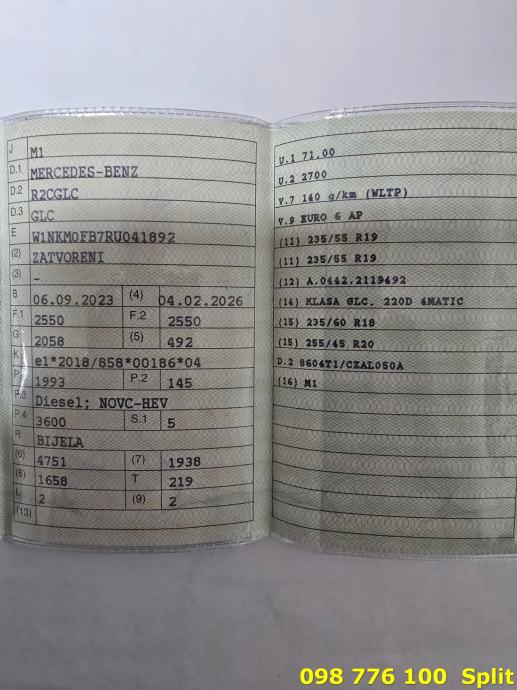 J M1
D.1 MERCEDES-BENZ
D.2 R2CGLC
D.3 GLC
E W1NKM0FB7RU041892
(2) ZATVORENI
(3) -
B 06.09.2023 (4) 04.02.2026
F.1 2550 F.2 2550
G 2058 (5) 492
K e1*2018/858*00186*04
P.1 1993 P.2 145
P.3 Diesel; NOVC-HEV
P.4 3600 S.1 5
R BIJELA
(6) 4751 (7) 1938
(8) 1658 T 219
L 2 (9) 2
(13)
U.1 71,00
U.2 2700
V.7 140 g/km (WLTP)
V.9 EURO 6 AP
(11) 235/55 R19
(11) 235/55 R19
(12) A.0442.2119492
(14) KLASA GLC, 220D 4MATIC
(15) 235/60 R18
(15) 255/45 R20
D.2 8604T1/CZAL050A
(16) M1
098 776 100 Split